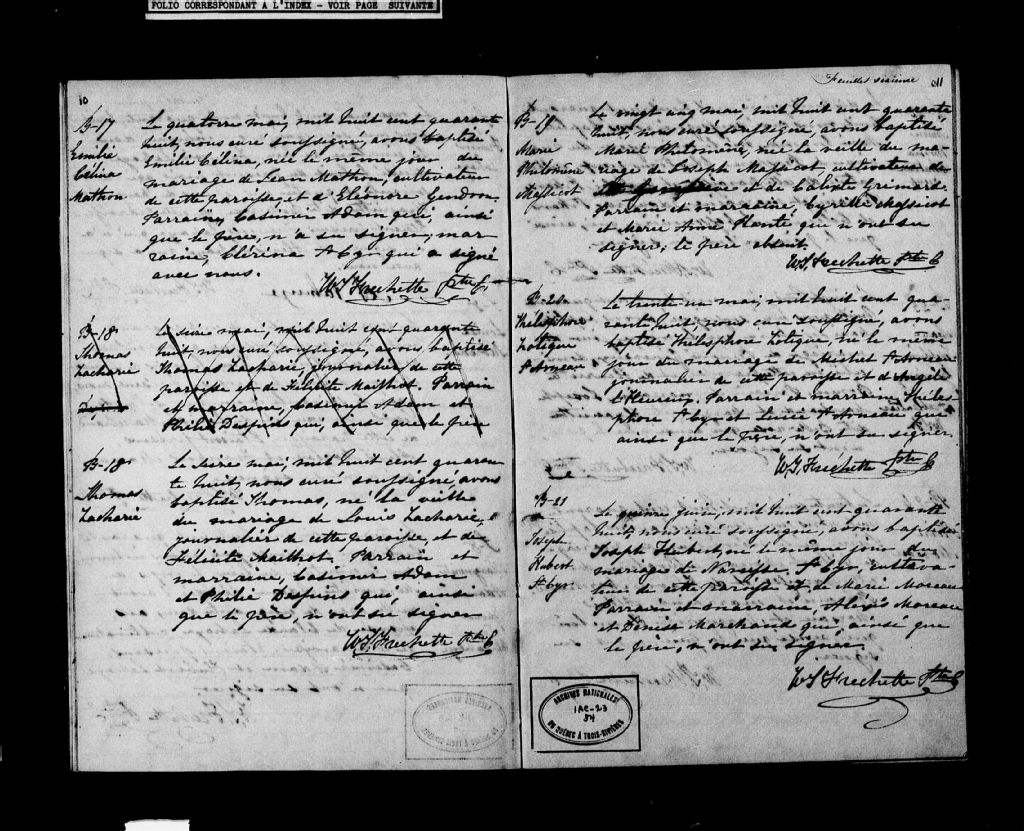 FOLIO CORRESPONDANT A L'INDEX - VOIR PAGE SUIVANTE
10
B-17
Emilie
Célina
Mathon
Le quatorze mai, mil huit cent quarante
huit, nous curé soussigné, avons baptisé
Emilie Célina, née le même jour du
mariage de Léan Mathon, cultivateur
de cette paroisse, et d'Eléonore Gendon.
Parrain, Casimir Adam qui, ainsi
que le père, n'a su signer, mar
raine, Clérina St Cyr qui a signé
avec nous.
W. S. Frechette Ptre C
B-18
Thomas
Zacharie
Le seize mai, mil huit cent quarante
huit, nous curé soussigné, avons baptisé
Thomas Zacharie, journalier de cette
paroisse et de Félicité Mailhot. Parrain
et marraine, Casimir Adam et
Philie Despins qui, ainsi que le père
B-18
Thomas
Zacharie
Le seize mai, mil huit cent quaran
te huit, nous curé soussigné, avons
baptisé Thomas, né la veille
du mariage de Louis Zacharie,
journalier de cette paroisse, et de
Félicité Mailhot. Parrain et
marraine, Casimir Adam
et Philie Despins qui, ainsi
que le père, n'ont su signer
W. S. Frechette Ptre C
Feuillet sixième
11
B-19
Marie
Philomène
Massicot
Le vingt cinq mai, mil huit cent quarante
huit, nous curé soussigné, avons baptisé
Marie Philomène, née la veille du ma-
riage de Joseph Massicot, cultivateur de
et de Calixte Grimard.
Parrain et marraine, Cyrille Massicot
et Marie Anne Planté qui n'ont su
signer; le père absent.
W. S. Frechette Ptre C
B-20
Thélesphore
Zotique
St Arneau
Le trente un mai, mil huit cent qua-
rante huit, nous curé soussigné, avons
baptisé Thélesphore Zotique, né le même
jour du mariage de Michel St Arneau
journalier de cette paroisse et d'Angèle
L'Heureux. Parrain et marraine, Théles-
phore St Cyr et St Arneau qui
ainsi que le père, n'ont su signer.
W. S. Frechette Ptre C
B-21
Joseph
Hubert
St Cyr
Le quinze juin, mil huit cent quarante
huit, nous curé soussigné, avons baptisé
Joseph Hubert, né le même jour du
mariage de Narcisse St Cyr, cultiva-
teur de cette paroisse et de Marie Moreau
Parrain et marraine, Alexis Moreau
et Denise Marchand qui, ainsi que
le père, n'ont su signer
W. S. Frechette Ptre C
ARCHIVES NATIONALES
1AC-23
54
DU QUÉBEC À TROIS-RIVIÈRES